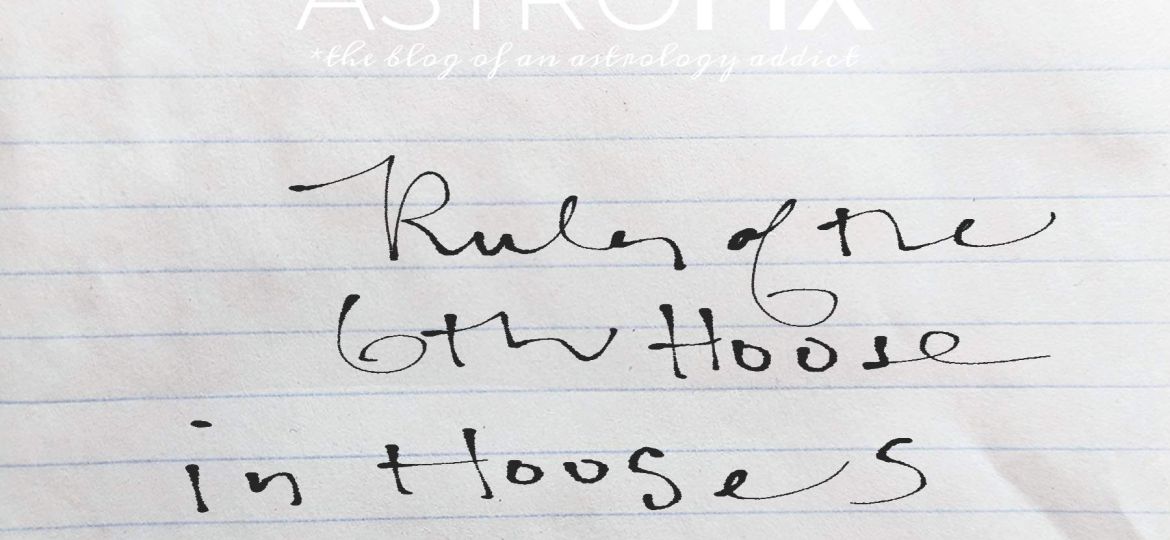 ASTROFIX
*the blog of an astrology addict
Ruler of the
6th House
in Houses